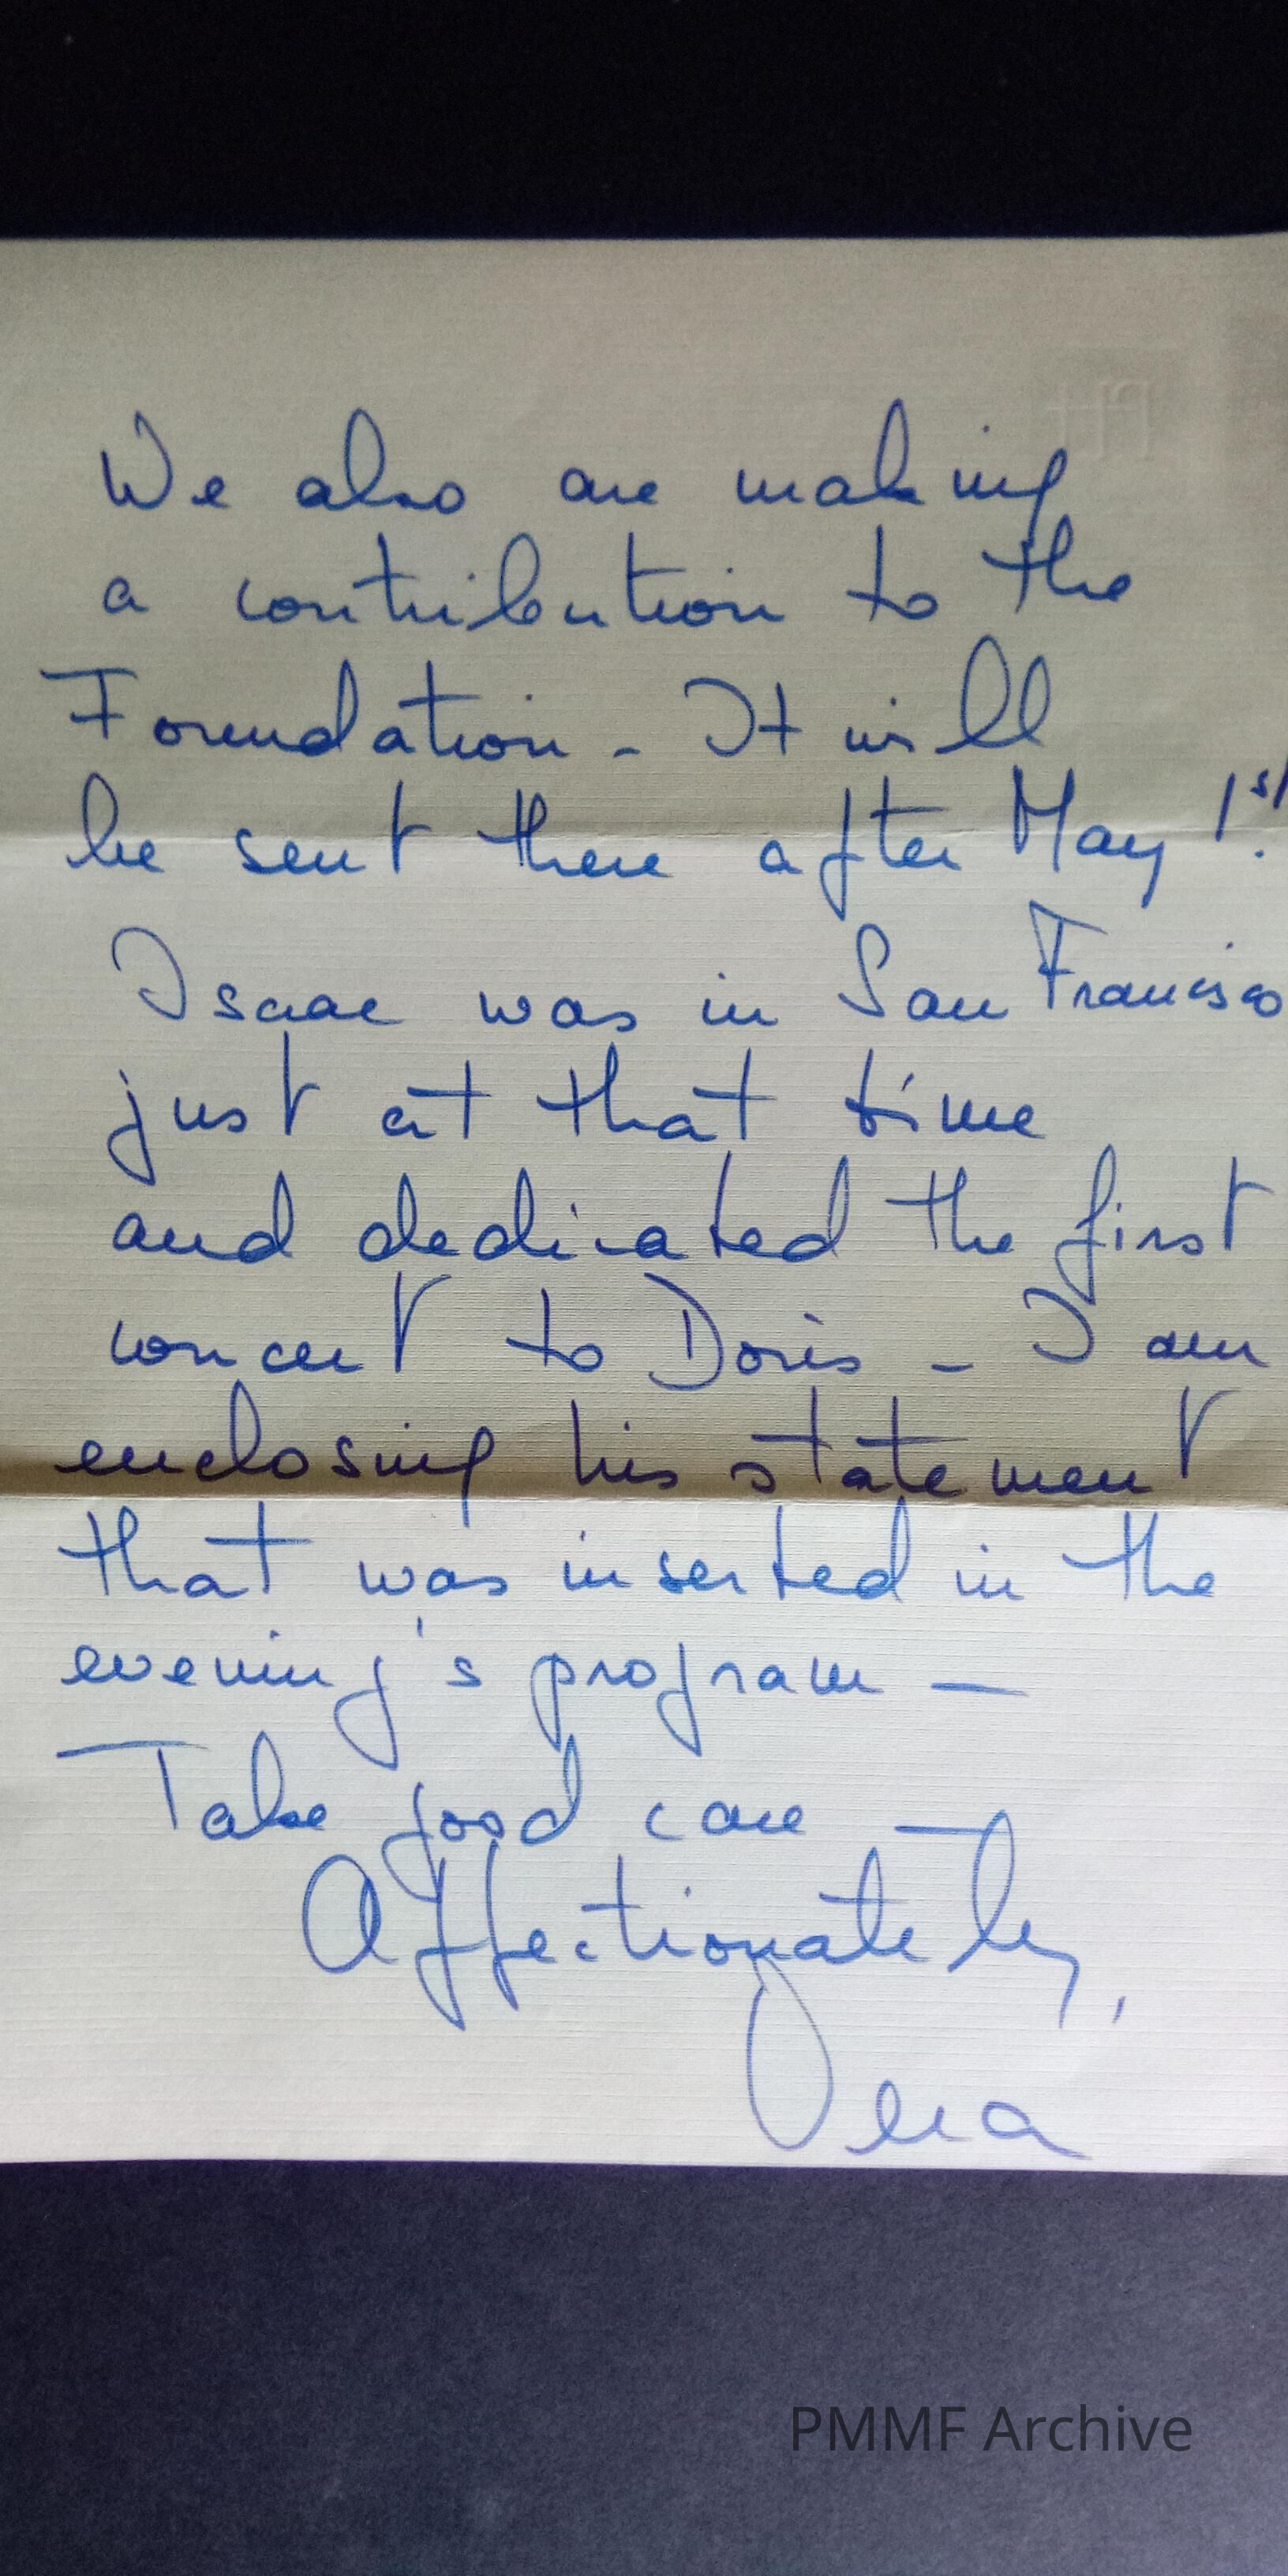 We also are making
a contribution to the
Foundation - It will
be sent there after May 1st.
Isaac was in San Francisco
just at that time
and dedicated the first
concert to Doris - I am
enclosing his statement
that was inserted in the
evening's program —
Take good care —
Affectionately,
Vera
PMMF Archive